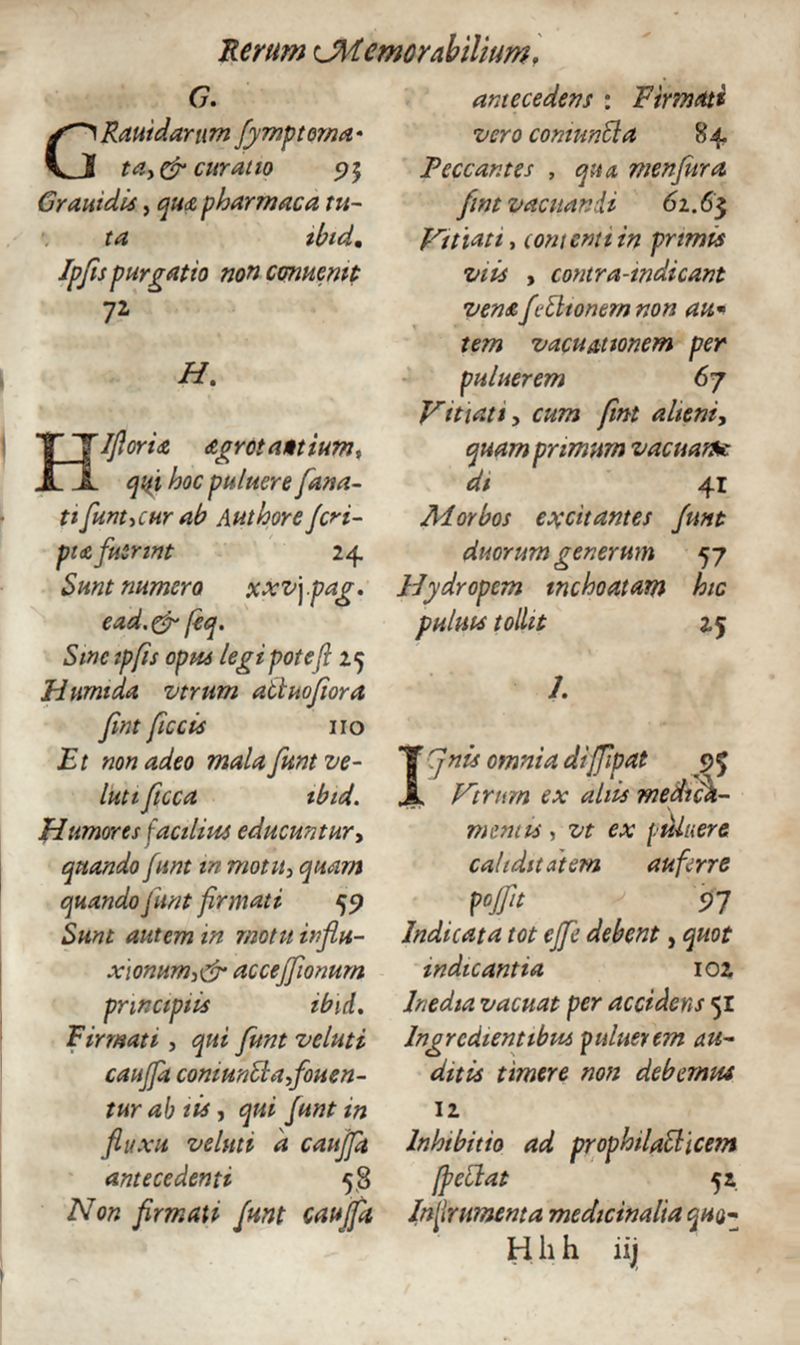 Rerum Memorabilium.
G.
GRauidarum ſymptoma-
ta, & curatio 93
Grauidis, quæ pharmaca tu-
ta ibid.
Ipſis purgatio non conuenit
72
H.
HIſtoriæ ægrotantium,
qui hoc puluere ſana-
ti ſunt, cur ab Authore ſcri-
ptæ fuerint 24
Sunt numero xxvj.pag.
ead.& ſeq.
Sine ipſis opus legi poteſt 25
Humida vtrum actuoſiora
ſint ſiccis 110
Et non adeo mala ſunt ve-
luti ſicca ibid.
Humores facilius educuntur,
quando ſunt in motu, quam
quando ſunt firmati 59
Sunt autem in motu influ-
xionum, & acceſſionum
principiis ibid.
Firmati, qui ſunt veluti
cauſſa coniuncta, fouen-
tur ab iis, qui ſunt in
fluxu veluti à cauſſa
antecedenti 58
Non firmati ſunt cauſſa
antecedens : Firmati
vero coniuncta 84
Peccantes , qua menſura
ſint vacuandi 62.63
Vitiati, contenti in primis
viis , contra-indicant
venæ ſectionem non au-
tem vacuationem per
puluerem 67
Vitiati, cum ſint alieni,
quam primum vacuan-
di 41
Morbos excitantes ſunt
duorum generum 57
Hydropem inchoatam hic
puluis tollit 25
I.
IGnis omnia diſſipat 95
Vtrum ex aliis medica-
mentis, vt ex puluere
caliditatem auferre
poſſit 97
Indicata tot eſſe debent, quot
indicantia 102
Inedia vacuat per accidens 51
Ingredientibus puluerem au-
ditis timere non debemus
12
Inhibitio ad prophilacticem
ſpectat 52
Inſtrumenta medicinalia quo-
Hhh iij